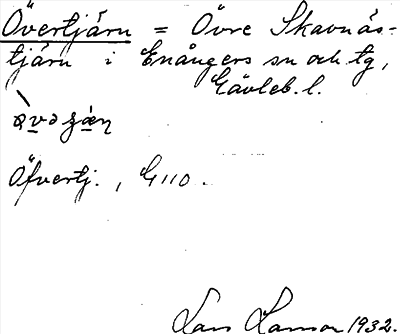 Övertjärn = Övre Skavnäs-
tjärn i Enångers sn och tg,
Gävleb. l.
Öfvertj., G 110.
Lars Hansson 1932.